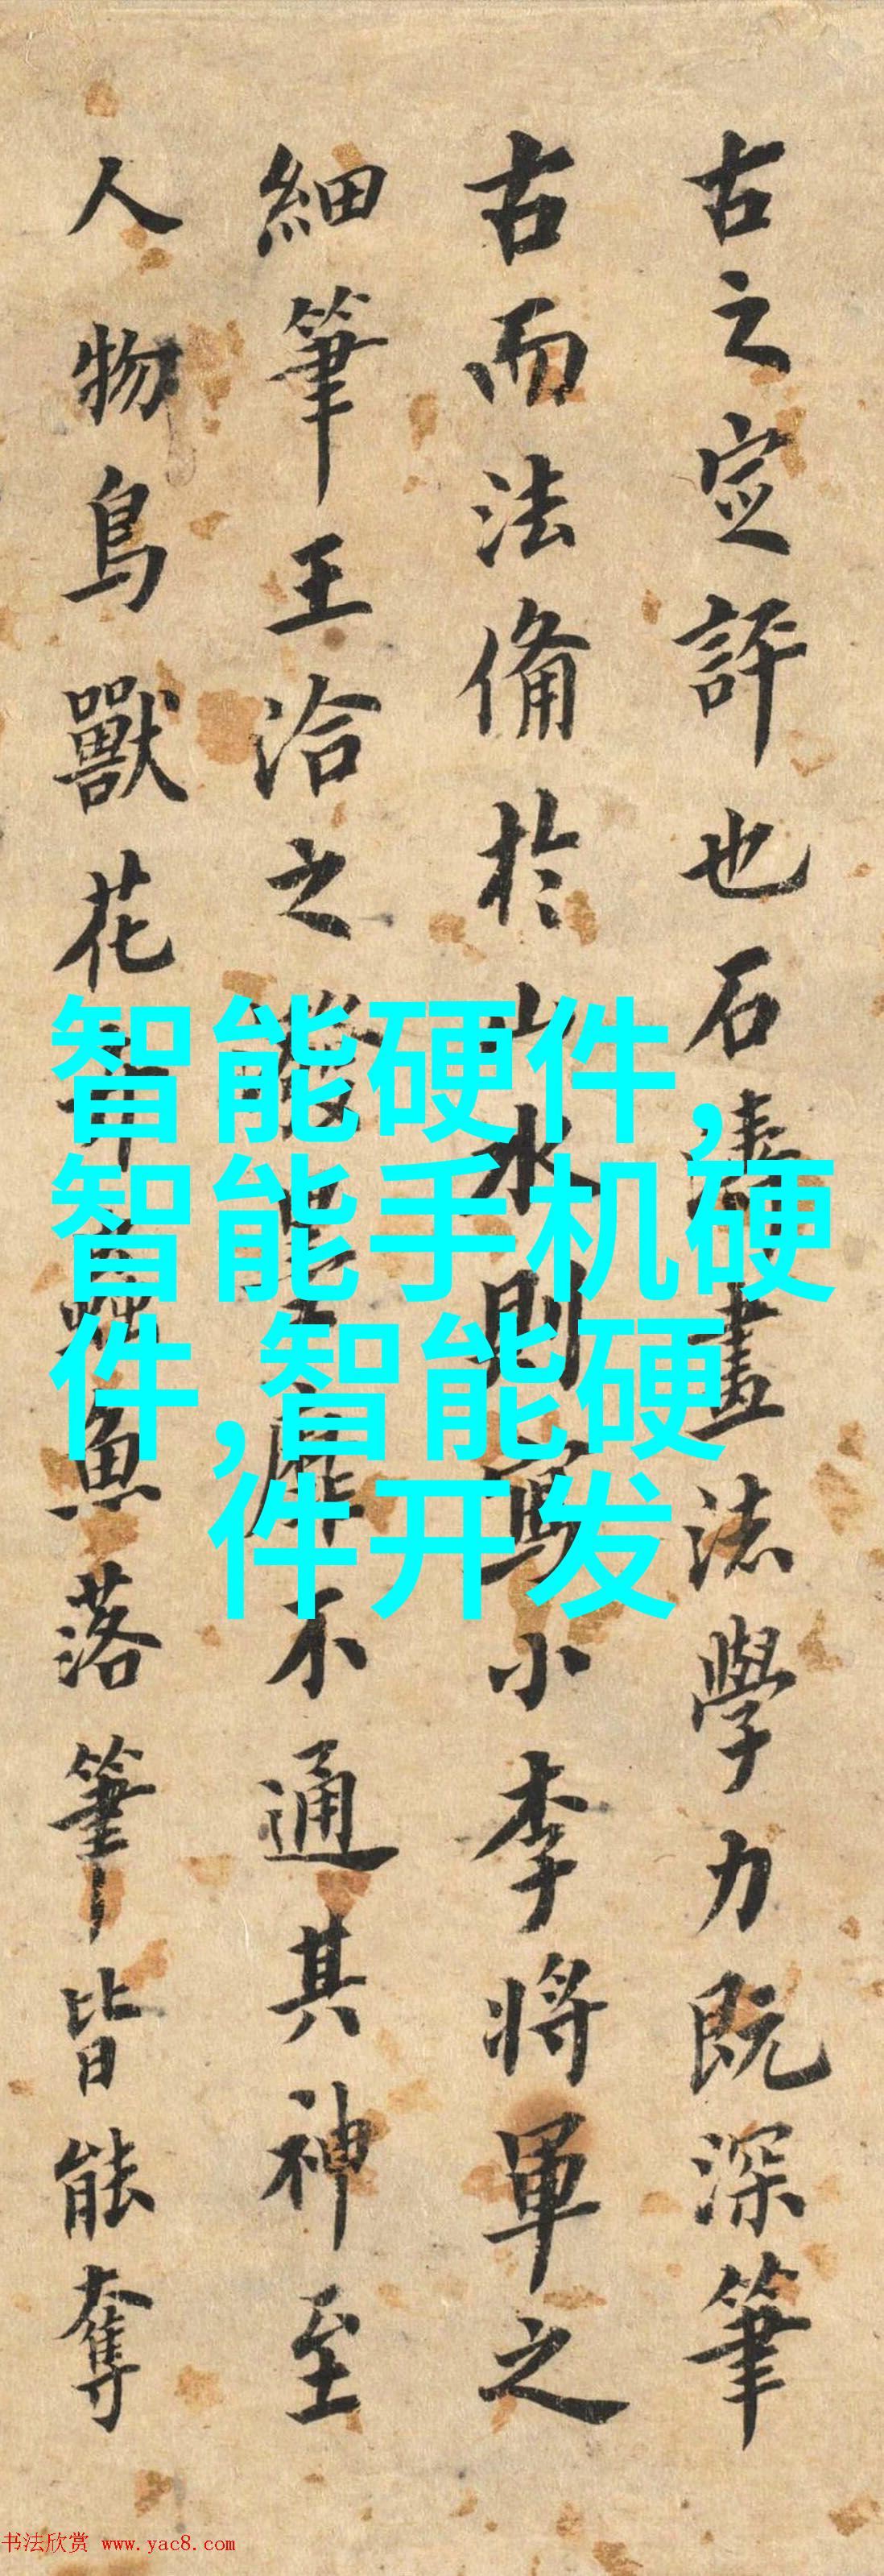 古之定評也石濤畫法學力既深筆
古而法備於山水則寫小李將軍之
細筆王洽之潑墨靡不通其神至
人物鳥獸花卉蟲魚落筆皆能奪
智能硬件,
智能手机硬
件,智能硬
件开发
书法欣赏 www.yac8.com